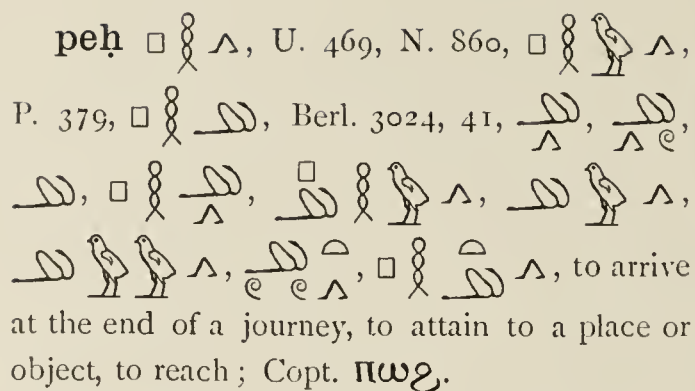 peḥ 𓊪𓎛𓂻, U. 469, N. 860, 𓊪𓎛𓅱𓂻,
P. 379, 𓊪𓎛𓄖, Berl. 3024, 41, 𓄖𓂻, 𓄖𓂻𓏲,
𓄖, 𓊪𓎛𓄖𓂻, 𓊪𓄖𓎛𓅱𓂻, 𓄖𓅱𓂻,
𓄖𓅱𓅱𓂻, 𓄖𓏲𓏲𓏏𓂻, 𓊪𓎛𓏏𓄖𓂻, to arrive
at the end of a journey, to attain to a place or
object, to reach ; Copt. ⲡⲱϩ.